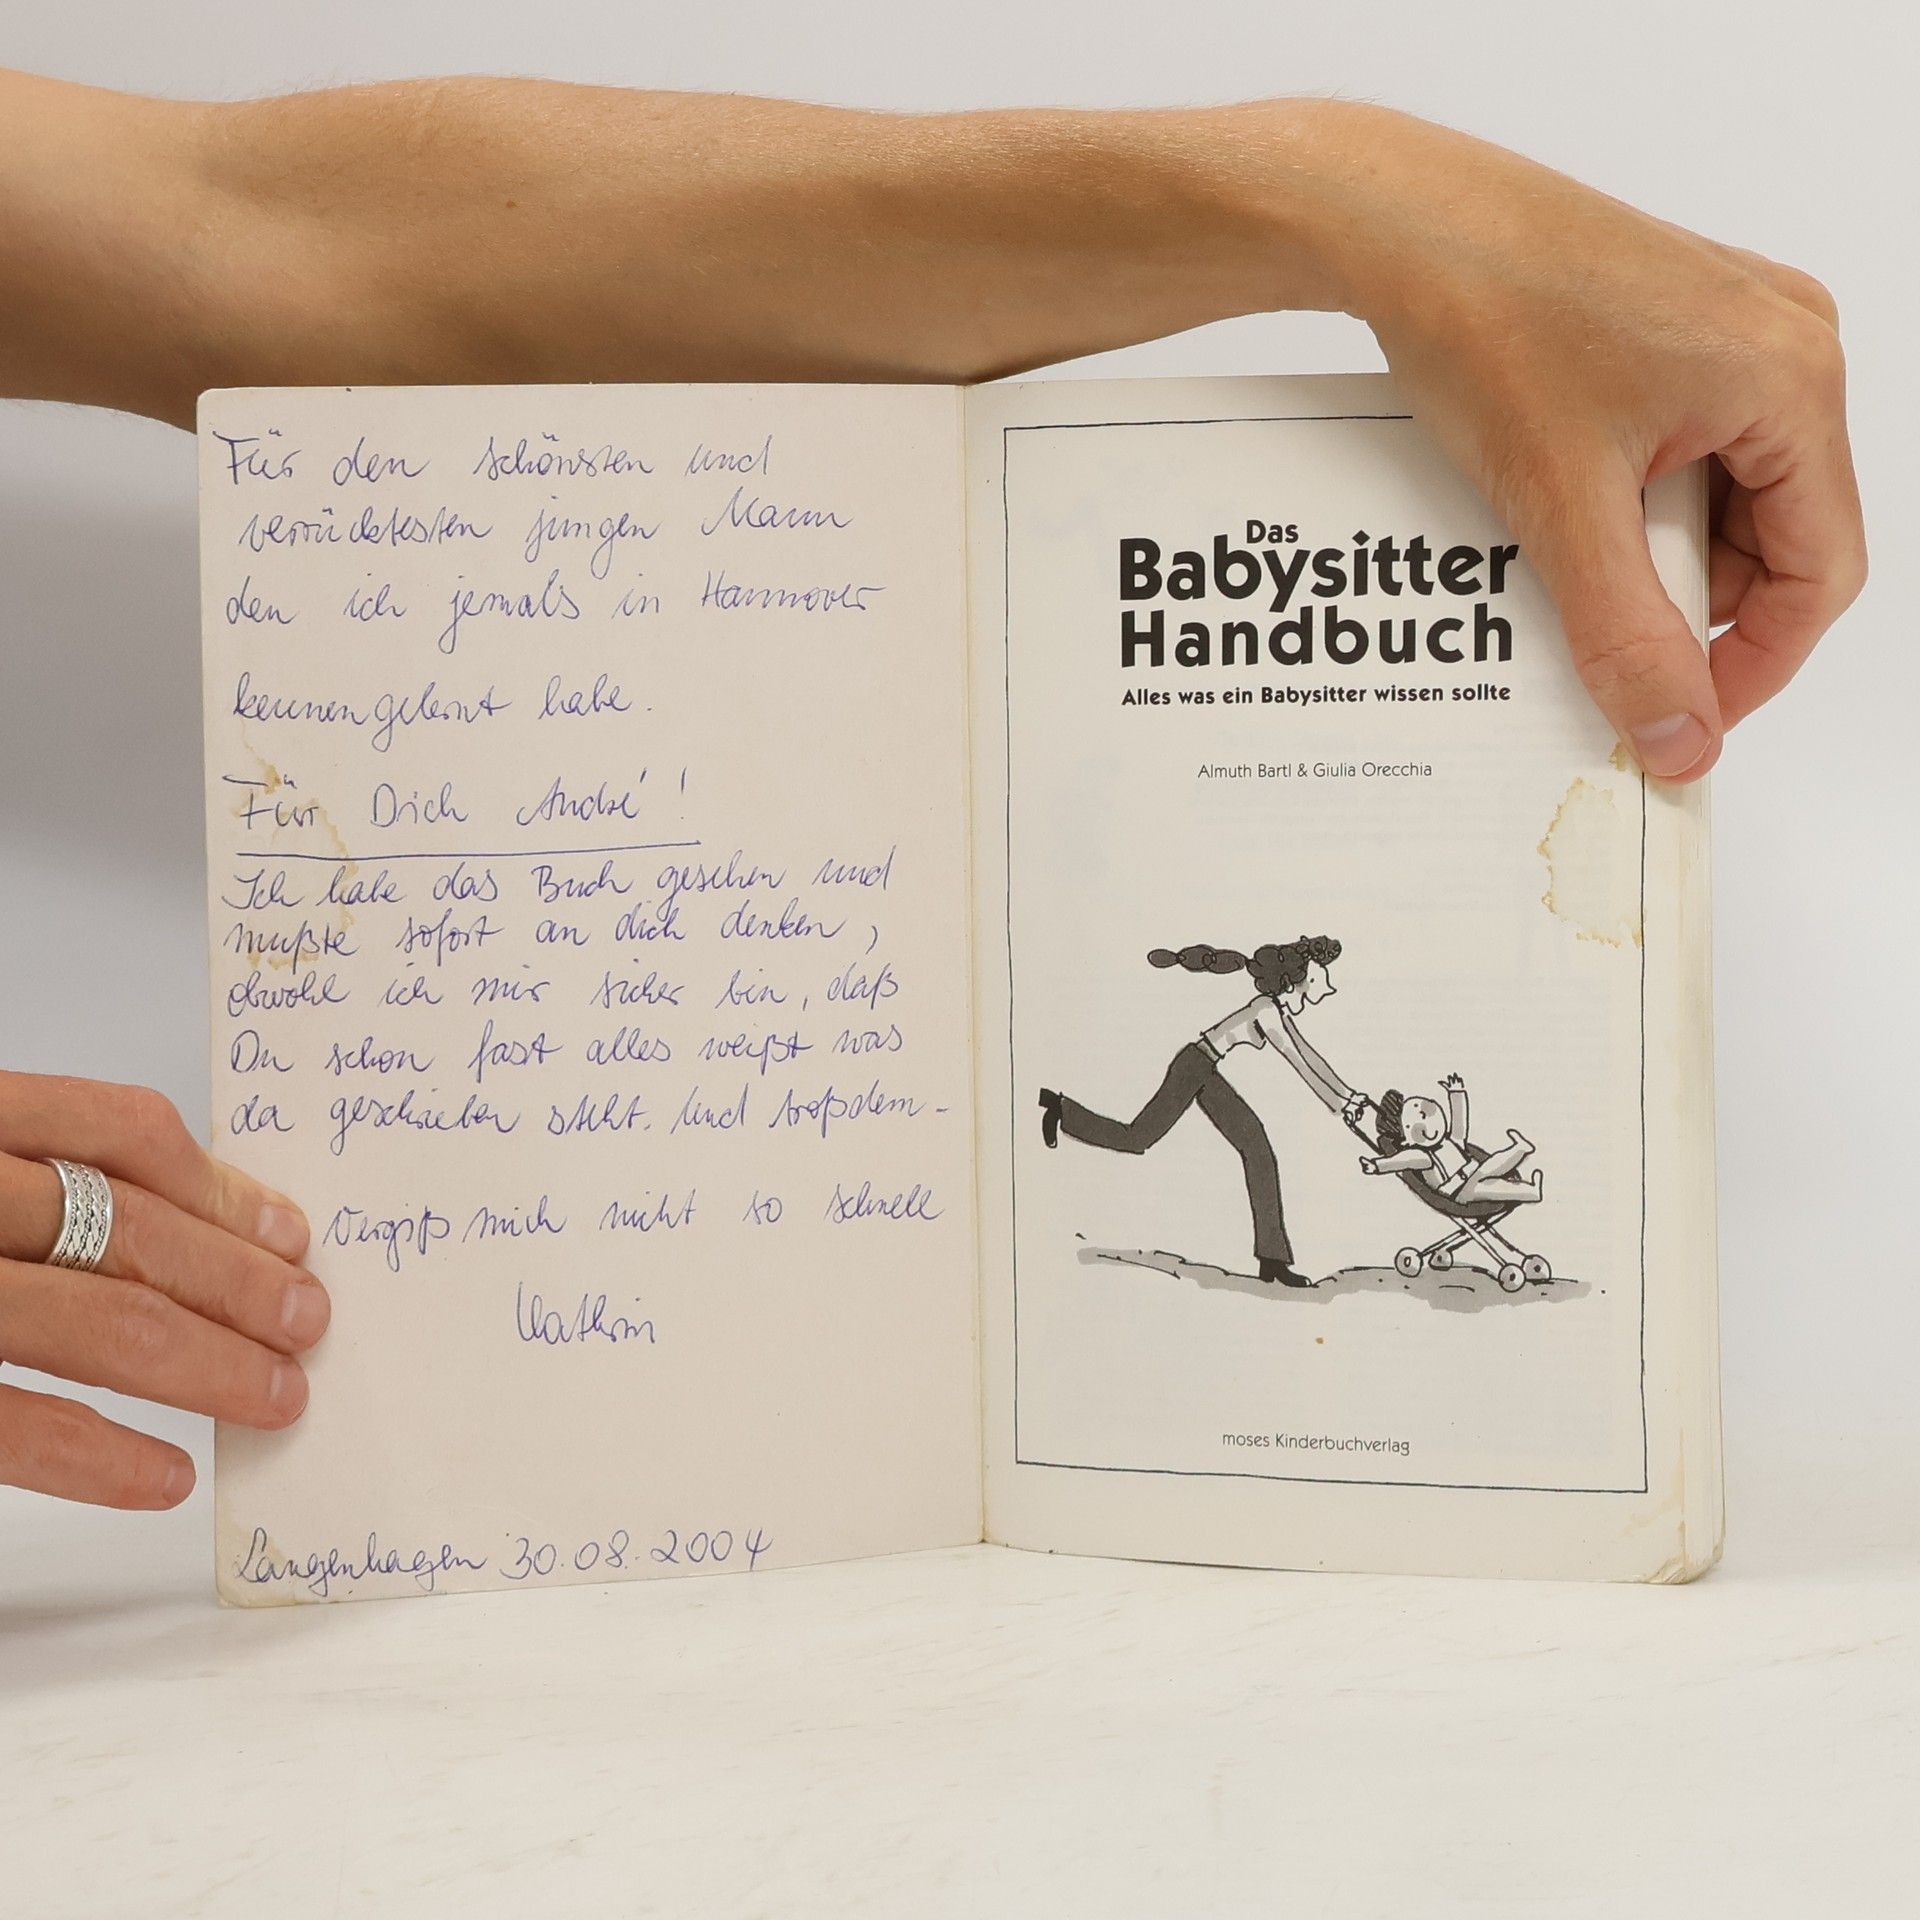 Für den schönsten und
verrücktesten jungen Mann
den ich jemals in Hannover
kennengelernt habe.
Für Dich André!
Ich habe das Buch gesehen und
mußte sofort an dich denken,
obwohl ich mir sicher bin, daß
Du schon fast alles weißt was
da geschrieben steht. Und troßdem-
Vergiß mich nicht so schnell
Kathrin
Langenhagen 30.08.2004
Das
Babysitter
Handbuch
Alles was ein Babysitter wissen sollte
Almuth Bartl & Giulia Orecchia
moses Kinderbuchverlag